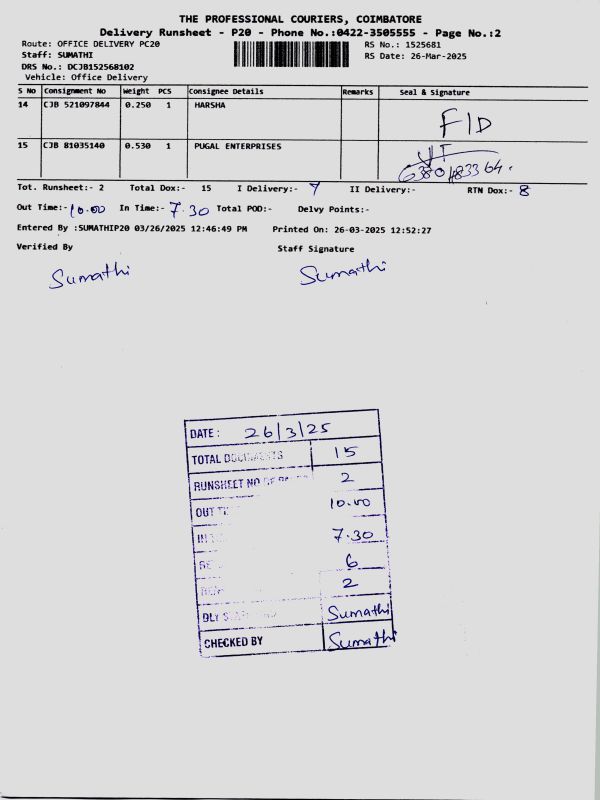 THE PROFESSIONAL COURIERS, COIMBATORE
Delivery Runsheet - P20 - Phone No.:0422-3505555 - Page No.:2
Route: OFFICE DELIVERY PC20 RS No.: 1525681
Staff: SUMATHI RS Date: 26-Mar-2025
DRS No.: DCJB152568102
Vehicle: Office Delivery
S No Consignment No Weight PCS Consignee Details Remarks Seal & Signature
14 CJB 521097844 0.250 1 HARSHA F/D
15 CJB 81035140 0.530 1 PUGAL ENTERPRISES
Tot. Runsheet:- 2 Total Dox:- 15 I Delivery:- 7 II Delivery:- RTN Dox:- 8
Out Time:- 10.00 In Time:- 7.30 Total POD:- Delvy Points:-
Entered By :SUMATHIP20 03/26/2025 12:46:49 PM Printed On: 26-03-2025 12:52:27
Verified By Staff Signature
Sumathi Sumathi
DATE: 26/3/25
TOTAL DOCUMENTS 15
RUNSHEET NO 2
OUT 10.00
IN 7.30
6
2
DLY Sumathi
CHECKED BY Sumathi